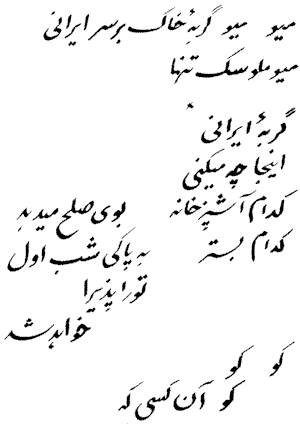 میو میو گربهٔ خاک بر سر ایرانی
میو ملوسک تنها
*
گربهٔ ایرانی
اینجا چه میکنی
کدام آشپزخانه بوی صلح میدهد
کدام بستر به پاکی شب اول
تو را پذیرا
خواهد شد
کو کو
کو آن کسی که